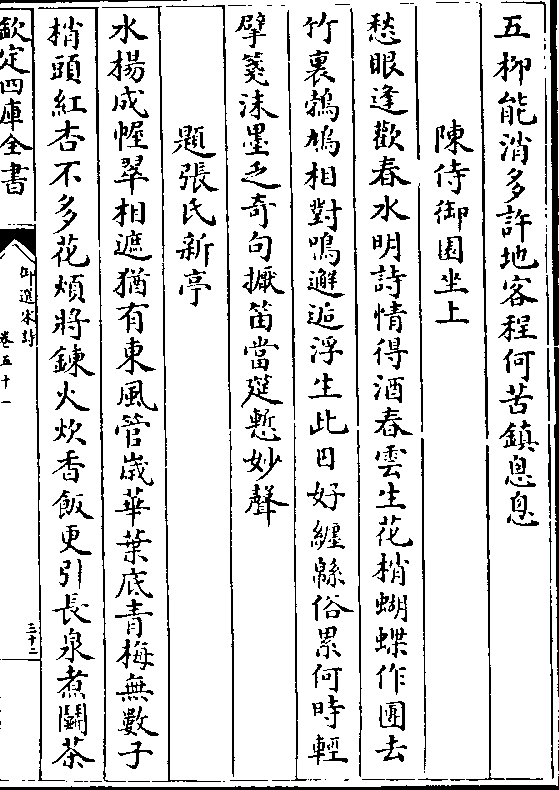 五柳能消多許地客程何苦鎮怱怱
陳侍御園坐上
愁眼逢歡春水明詩情得酒春雲生花梢蝴蝶作團去
竹裏鵓鳩相對鳴邂逅浮生此日好纏緜俗累何時輕
擘箋沫墨乏奇句擫笛當筵慙妙聲
題張氏新亭
水楊成幄翠相遮猶有東風管歳華葉底青梅無數子
梢頭紅杏不多花煩將鍊火炊香飯更引長泉煮鬬茶
欽定四庫全書
御選宋詩
卷五十一
三十二